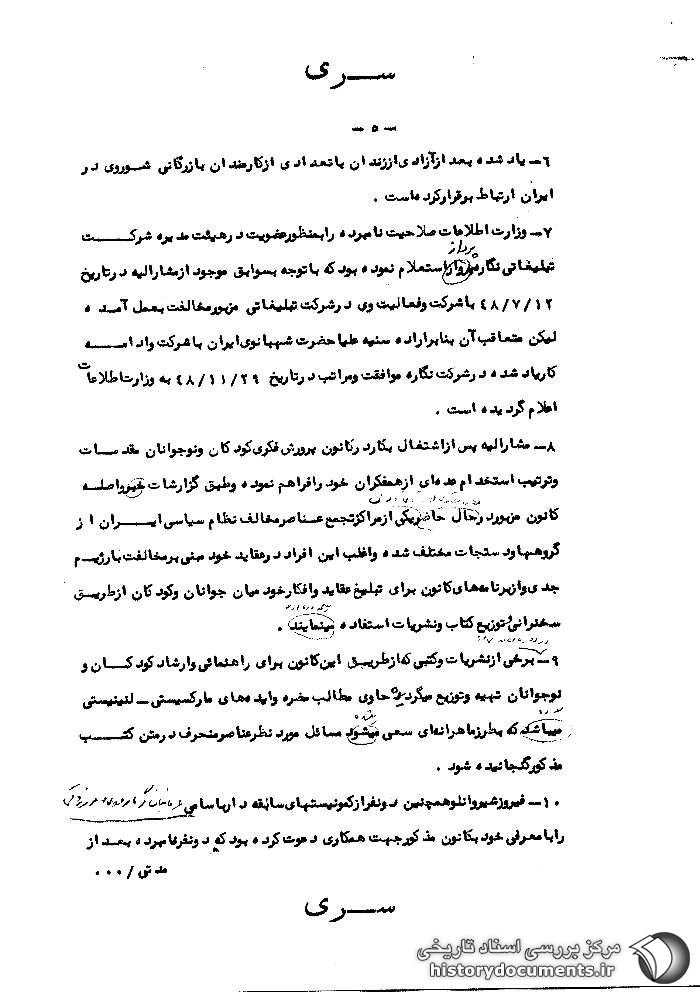 سری
- ۵ -
۶- یاد شده بعد از آزادی از زندان با تعدادی از کارمندان بازرگانی شوروی در
ایران ارتباط برقرار کرده است .
۷- وزارت اطلاعات صلاحیت نامبرده را بمنظور عضویت در هیئت مدیره شرکت
پرداز
تبلیغاتی نگاره استعلام نموده بود که با توجه بسوابق موجود از مشارالیه در تاریخ
۴۸/۷/۱۲ با شرکت و فعالیت وی در شرکت تبلیغاتی مزبور مخالفت بعمل آمده
لیکن متعاقب آن بنابر اراده سنیه علیا حضرت شهبانوی ایران با شرکت و ادامه
کار یاد شده در شرکت نگاره موافقت و مراتب در تاریخ ۴۸/۱۱/۲۹ به وزارت اطلاعات
اعلام گردیده است .
۸- مشارالیه پس از اشتغال بکار در کانون پرورش فکری کودکان و نوجوانان مقدمات
و ترتیب استخدام عده‌ای از همفکران خود را فراهم نموده و طبق گزارشات خبر واصله
کانون مزبور در حال حاضر یکی از مراکز تجمع عناصر مخالف نظام سیاسی ایران از
گروهها و دستجات مختلف شده و اغلب این افراد در عقاید خود مبنی بر مخالفت با رژیم
جدی و از برنامه‌های کانون برای تبلیغ عقاید و افکار خود میان جوانان و کودکان از طریق
سخنرانی و توزیع کتاب و نشریات استفاده مینمایند .
۹- برخی از نشریات و کتبی که از طریق این کانون برای راهنمائی و ارشاد کودکان و
نوجوانان تهیه و توزیع میگردید حاوی مطالب مضره و ایده‌های مارکسیستی - لنینیستی
میباشد که بطرز ماهرانه‌ای سعی میشود مسائل مورد نظر عناصر منحرف در متن کتب
مذکور گنجانیده شود .
۱۰- فیروز شیروانلو همچنین دو نفر از کمونیستهای سابقه دار باسامی
را با معرفی خود بکانون مذکور جهت همکاری دعوت کرده بود که دو نفر نامبرده بعد از
مدتی /۰۰۰
سری
مرکز بررسی اسناد تاریخی
historydocuments.ir